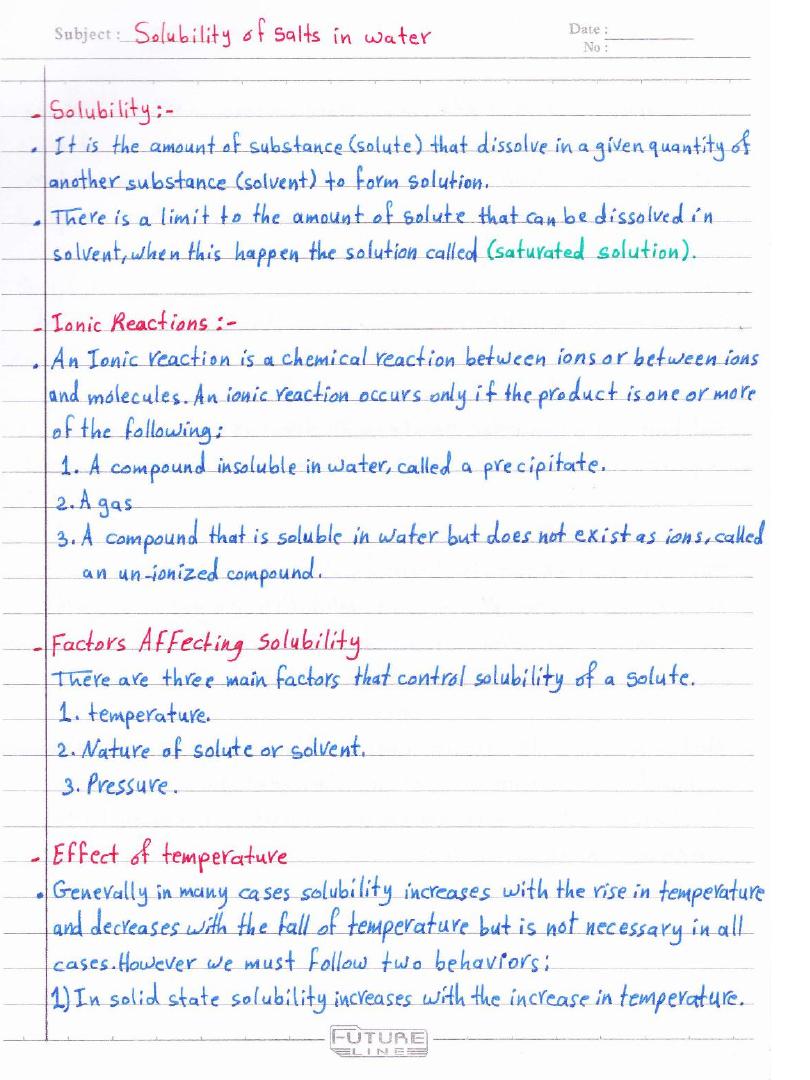 Subject : Solubility of salts in water
Date :
No :
- Solubility:-
. It is the amount of substance (solute) that dissolve in a given quantity of
another substance (solvent) to form solution.
. There is a limit to the amount of solute that can be dissolved in
solvent, when this happen the solution called (saturated solution).
- Ionic Reactions :-
. An Ionic reaction is a chemical reaction between ions or between ions
and molecules. An ionic reaction occurs only if the product is one or more
of the following:
1. A compound insoluble in water, called a precipitate.
2. A gas
3. A compound that is soluble in water but does not exist as ions, called
an un-ionized compound.
- Factors Affecting Solubility
There are three main factors that control solubility of a solute.
1. temperature.
2. Nature of solute or solvent.
3. Pressure.
- Effect of temperature
. Generally in many cases solubility increases with the rise in temperature
and decreases with the fall of temperature but is not necessary in all
cases. However we must follow two behaviors:
1) In solid state solubility increases with the increase in temperature.
FUTURE
LINE